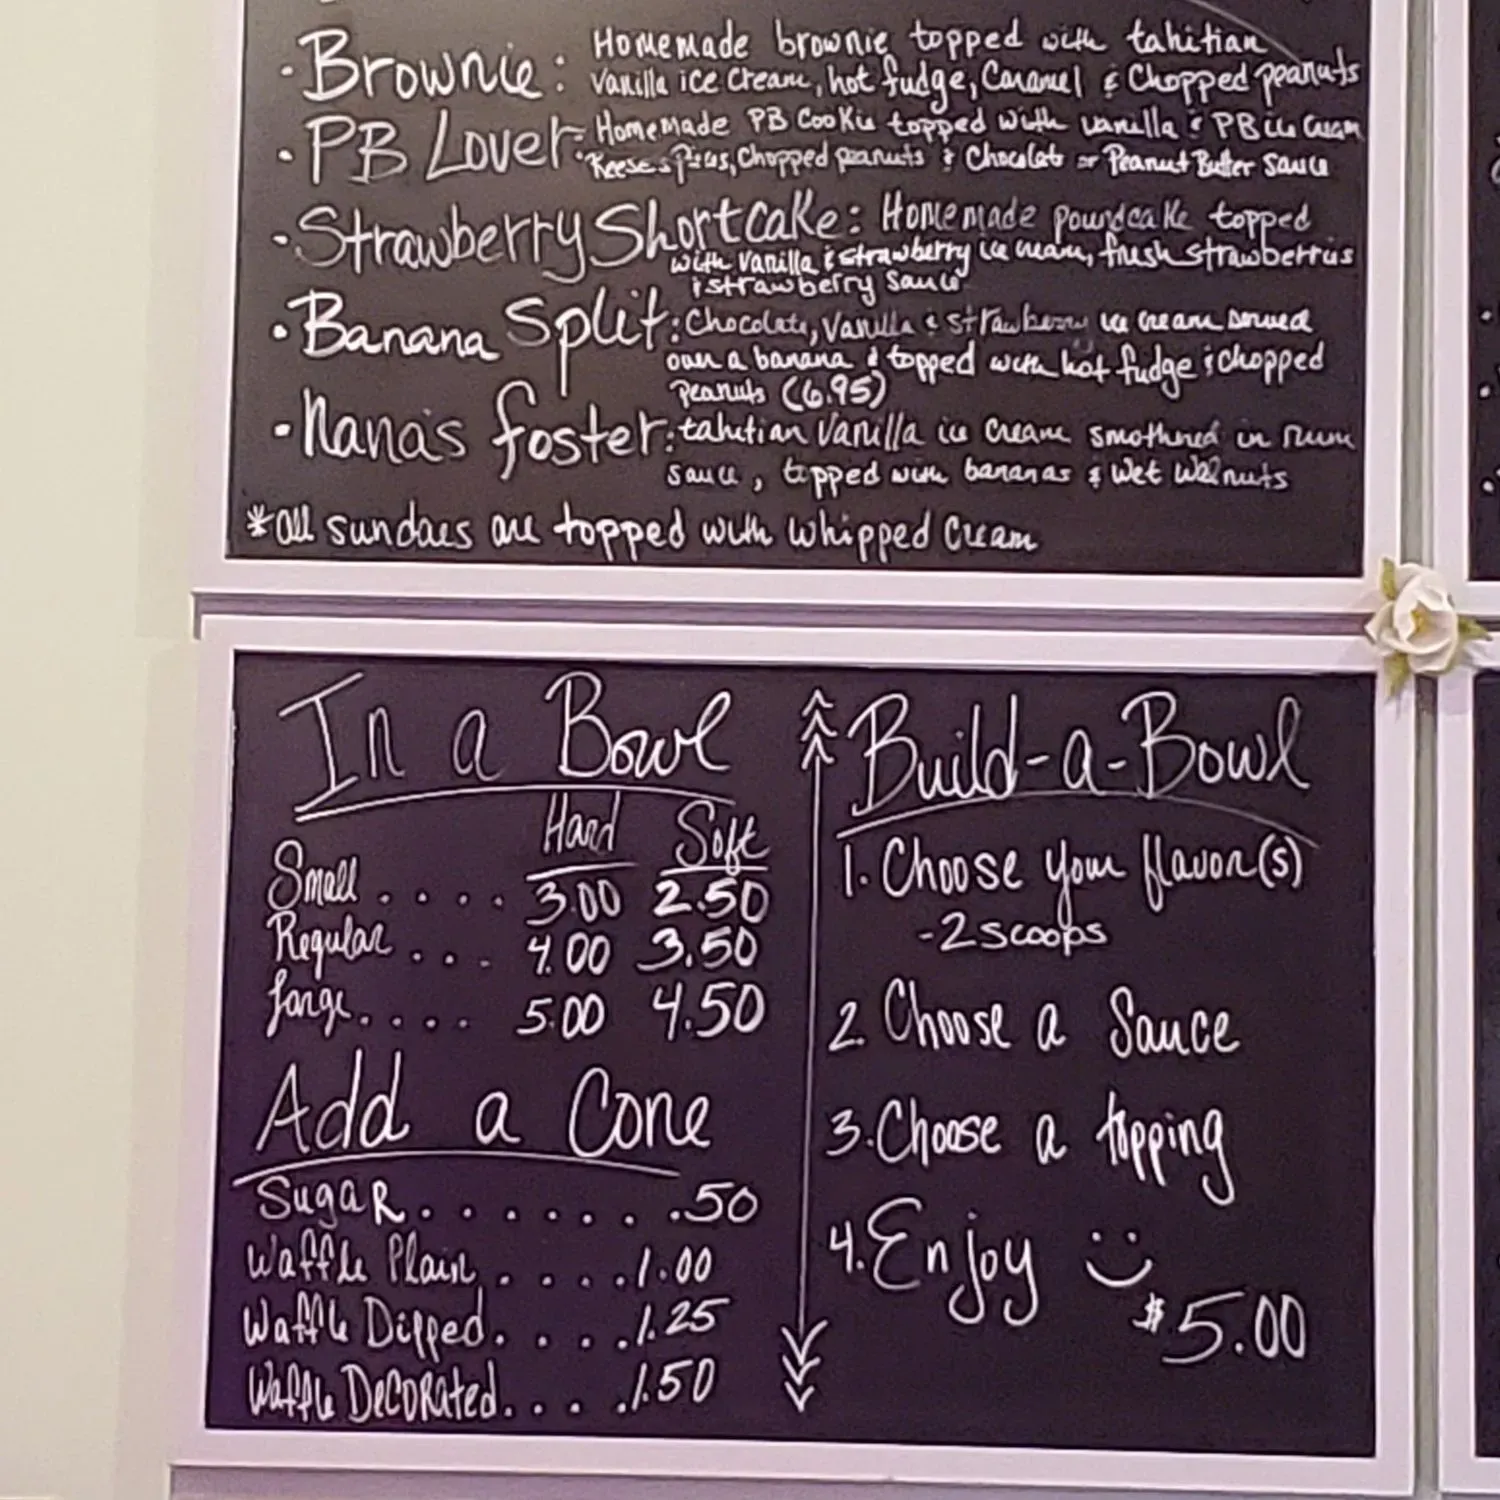 • Brownie: Homemade brownie topped with tahitian
vanilla ice cream, hot fudge, Caramel & Chopped peanuts
• PB Lover: Homemade PB Cookie topped with vanilla & PB ice cream
Reeses pieces, chopped peanuts & Chocolate or Peanut Butter Sauce
• Strawberry Shortcake: Homemade poundcake topped
with vanilla & strawberry ice cream, fresh strawberries
& strawberry sauce
• Banana Split: Chocolate, Vanilla & strawberry ice cream served
over a banana & topped with hot fudge & chopped
peanuts (6.95)
• Nana's foster: tahitian Vanilla ice cream smothered in rum
sauce, topped with bananas & wet walnuts
*all sundaes are topped with whipped cream
In a Bowl
Hard Soft
Small . . . . 3.00 2.50
Regular . . . 4.00 3.50
Large . . . . 5.00 4.50
Add a Cone
Sugar . . . . . . .50
Waffle Plain . . . . 1.00
Waffle Dipped . . . . 1.25
Waffle Decorated . . . . 1.50
Build-a-Bowl
1. Choose your flavor(s)
- 2 scoops
2. Choose a Sauce
3. Choose a topping
4. Enjoy
$5.00